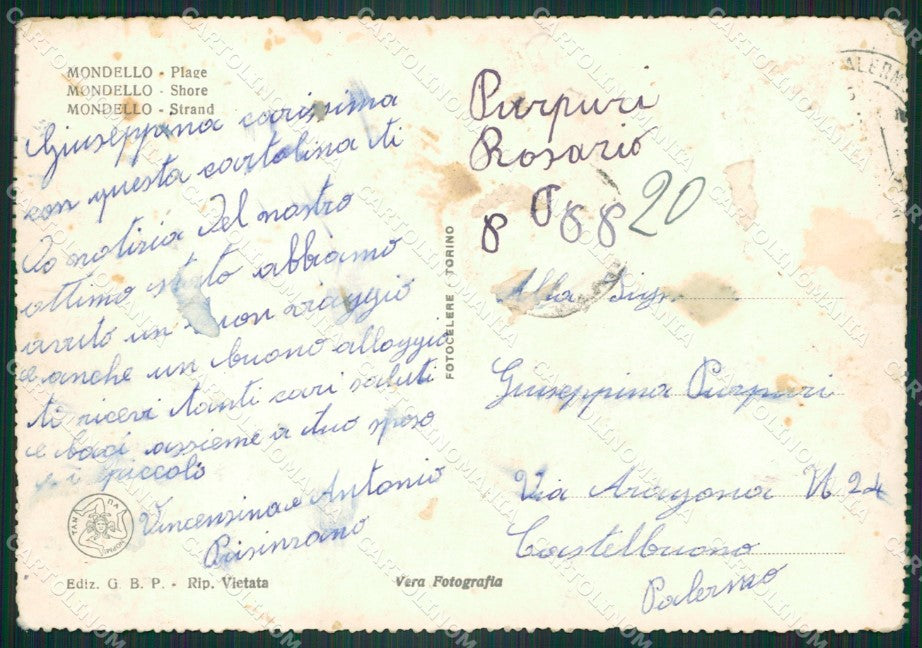 MONDELLO - Plage
MONDELLO - Shore
MONDELLO - Strand
Giuseppina carissima
con questa cartolina ti
do notizia del nostro
ottimo stato abbiamo
avuto un buon viaggio
e anche un buono alloggio
ti ricevi tanti cari saluti
e baci assieme a tuo sposo
e i piccoli
Vincensina e Antonio
Ediz. G. B. P. - Rip. Vietata
Vera Fotografia
FOTOCELERE - TORINO
Purpuri
Rosario
20
Alla Sign
Giuseppina Purpuri
Via Aragona N 24
Castelbuono
Palermo
CARTOLINOMANIA